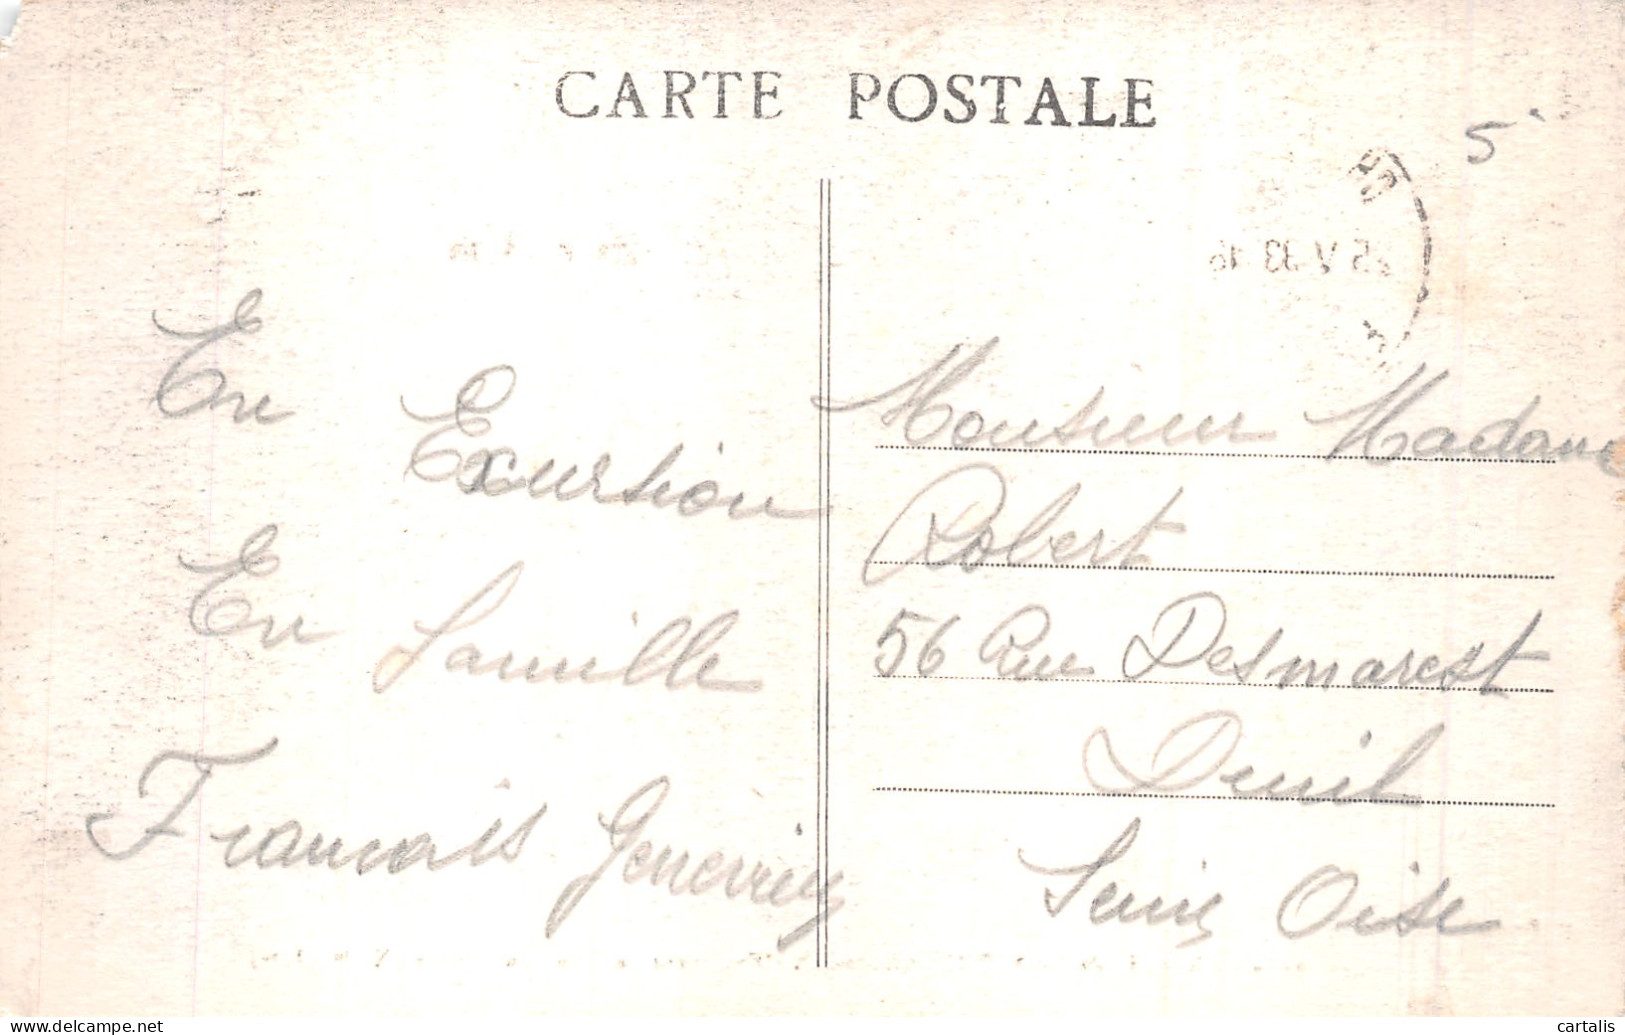 CARTE POSTALE
5
25 V 33 16
En
Exursion
En famille
Francois
Monsieur Madame
Robert
56 Rue Desmarest
Deuil
Seine Oise
delcampe.net
cartalis